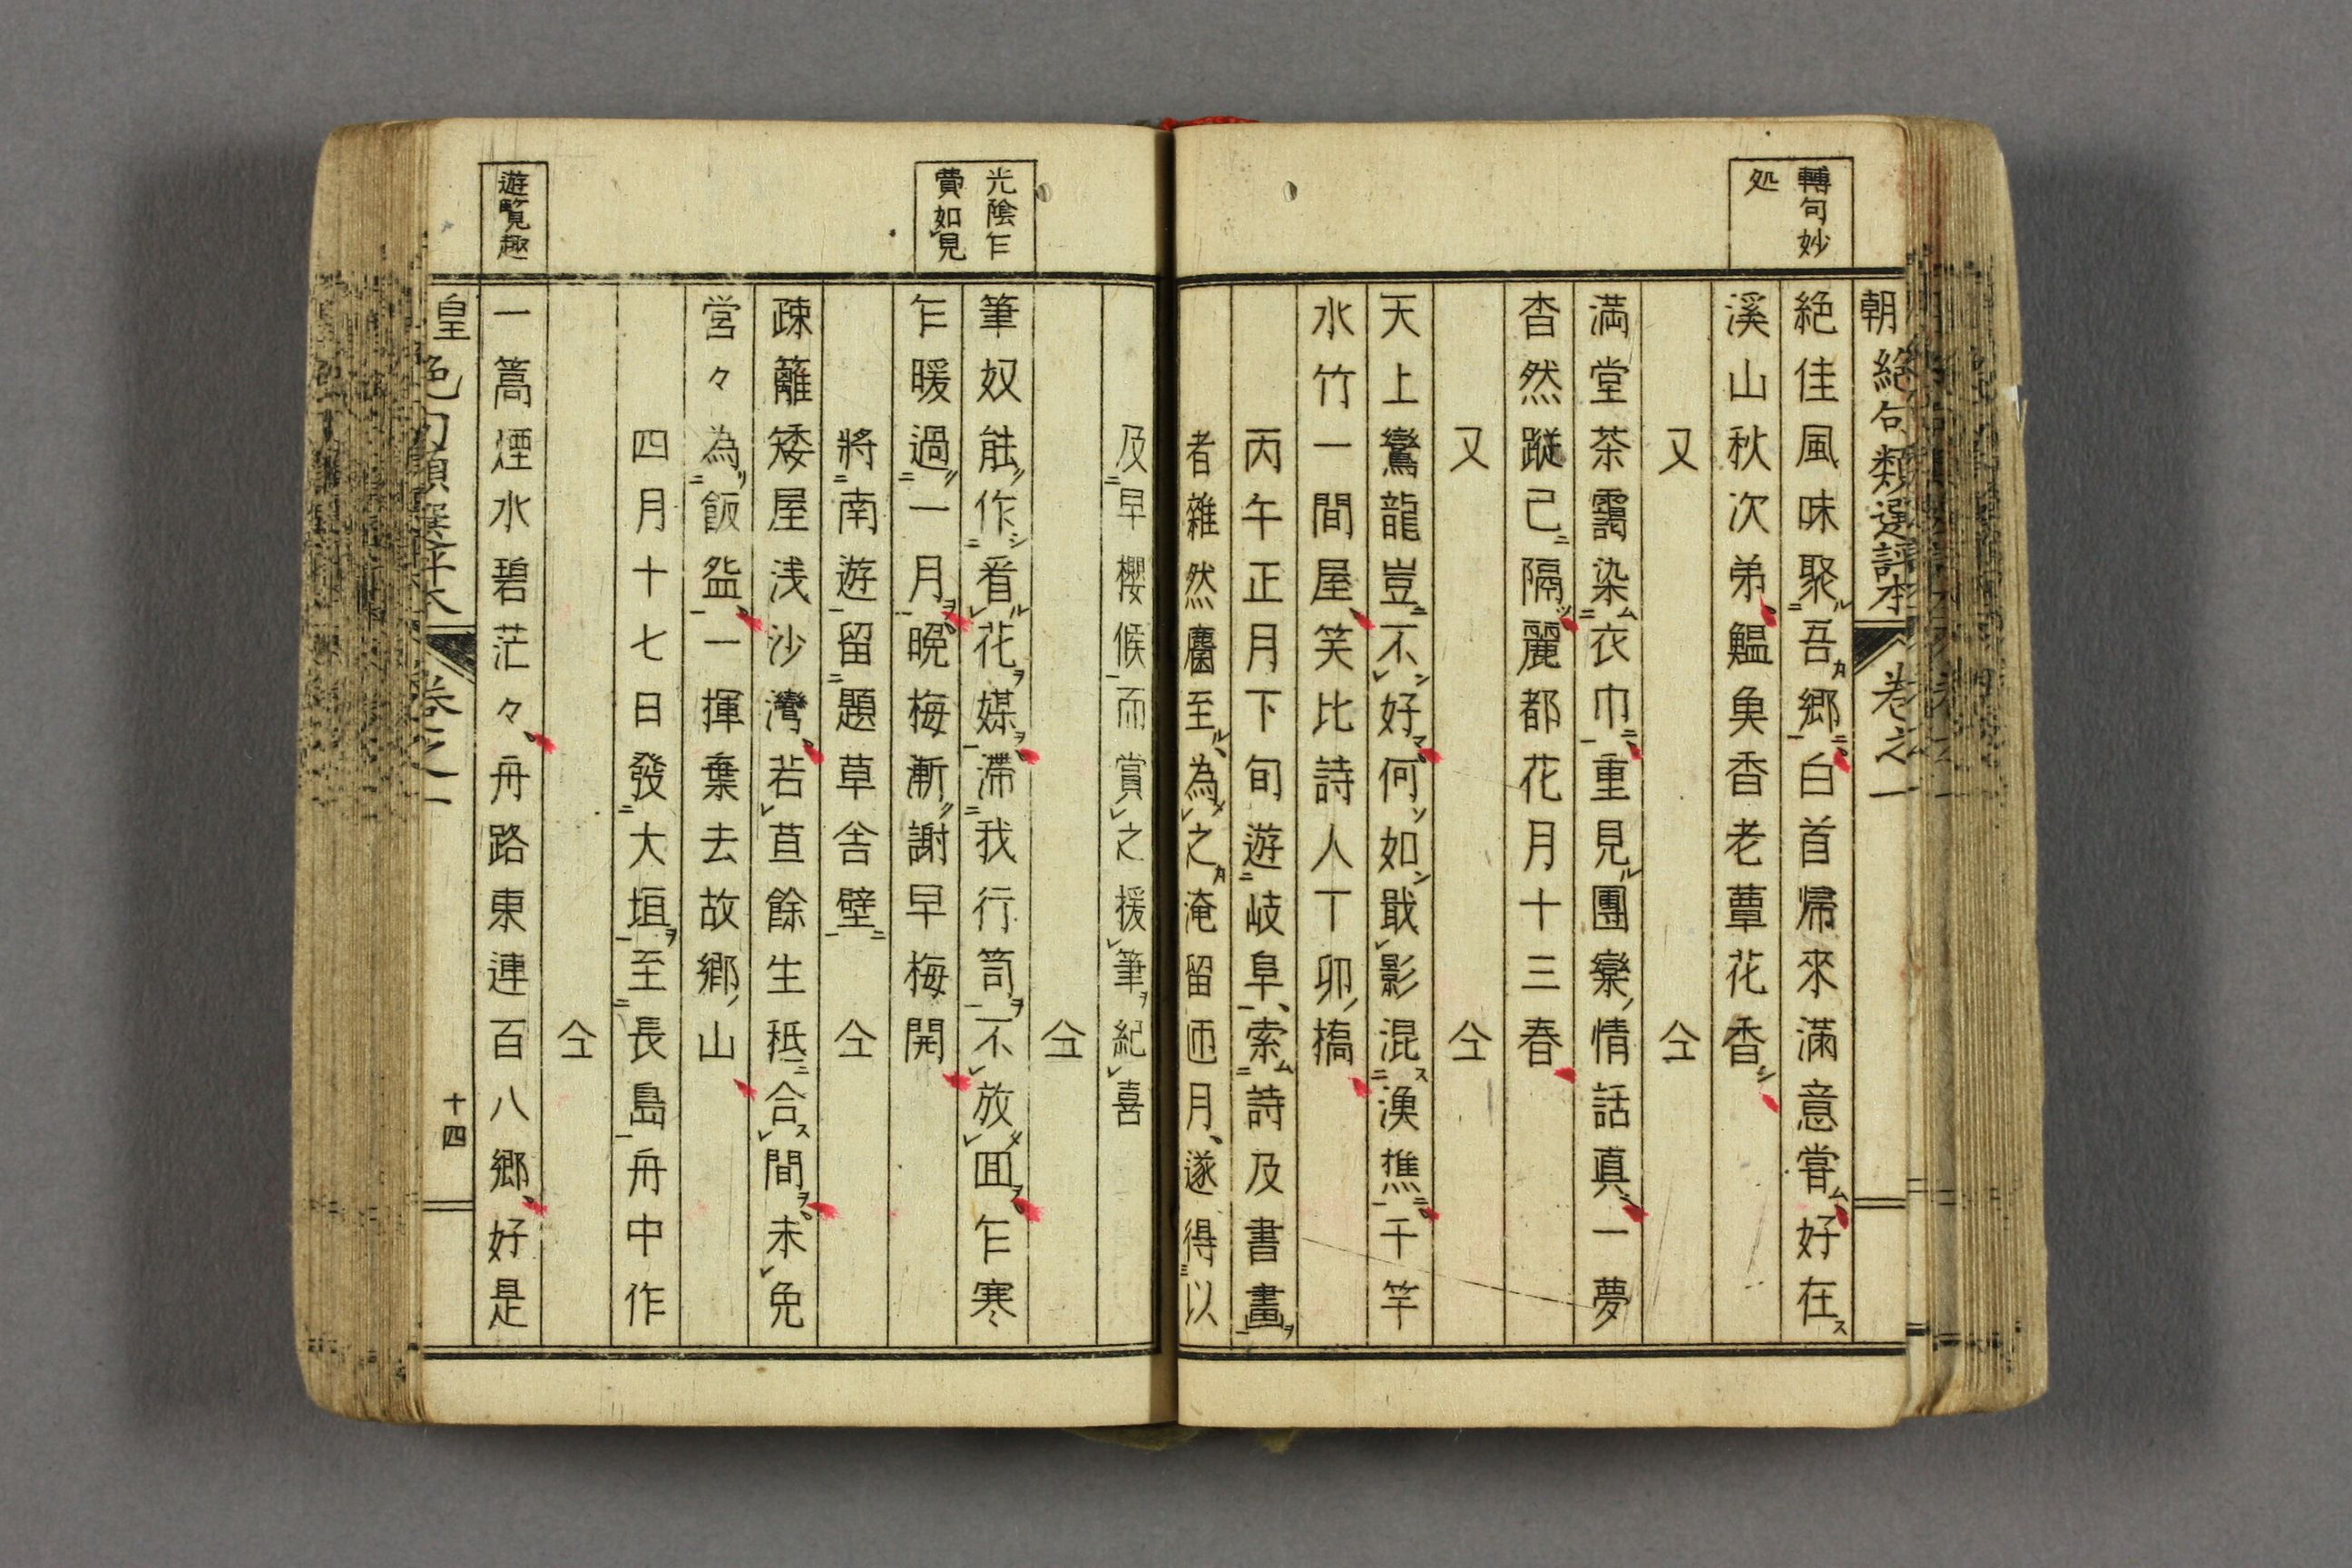 朝 絶句類選評本 卷之一
轉句妙
処
絶佳風味聚吾郷白首帰來滿意甞好在
溪山秋次弟鰮魚香老蕈花香
又 仝
満堂茶靄染衣巾重見團欒情話真一夢
杳然蹤已隔麗都花月十三春
又 仝
天上鸞龍豈不好何如戢影混漁樵千竿
水竹一間屋笑比詩人丁卯橋
丙午正月下旬遊岐阜索詩及書畫
者雜然麕至為之淹留匝月遂得以
及早櫻候而賞之援筆紀喜
仝
光陰乍
費如見
筆奴能作看花媒滯我行笥不放囬乍寒
乍暖過一月晩梅漸謝早梅開
將南遊留題草舎壁 仝
疎籬矮屋浅沙灣若苴餘生秖合間未免
営々為飯盌一揮棄去故郷山
四月十七日發大垣至長島舟中作
仝
遊覧趣
一篙煙水碧茫々舟路東連百八郷好是
皇 絶句類選評本 卷之一 十四